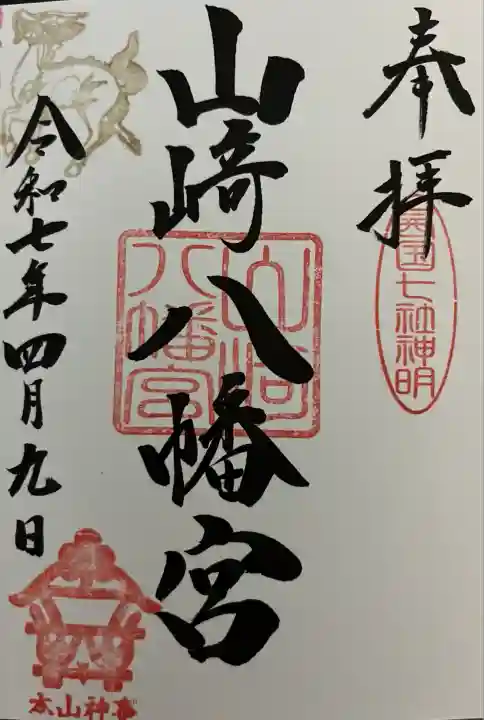 奉拝
国七社神明
山崎八幡宮
山崎八幡宮
令和七年四月九日
本山神事